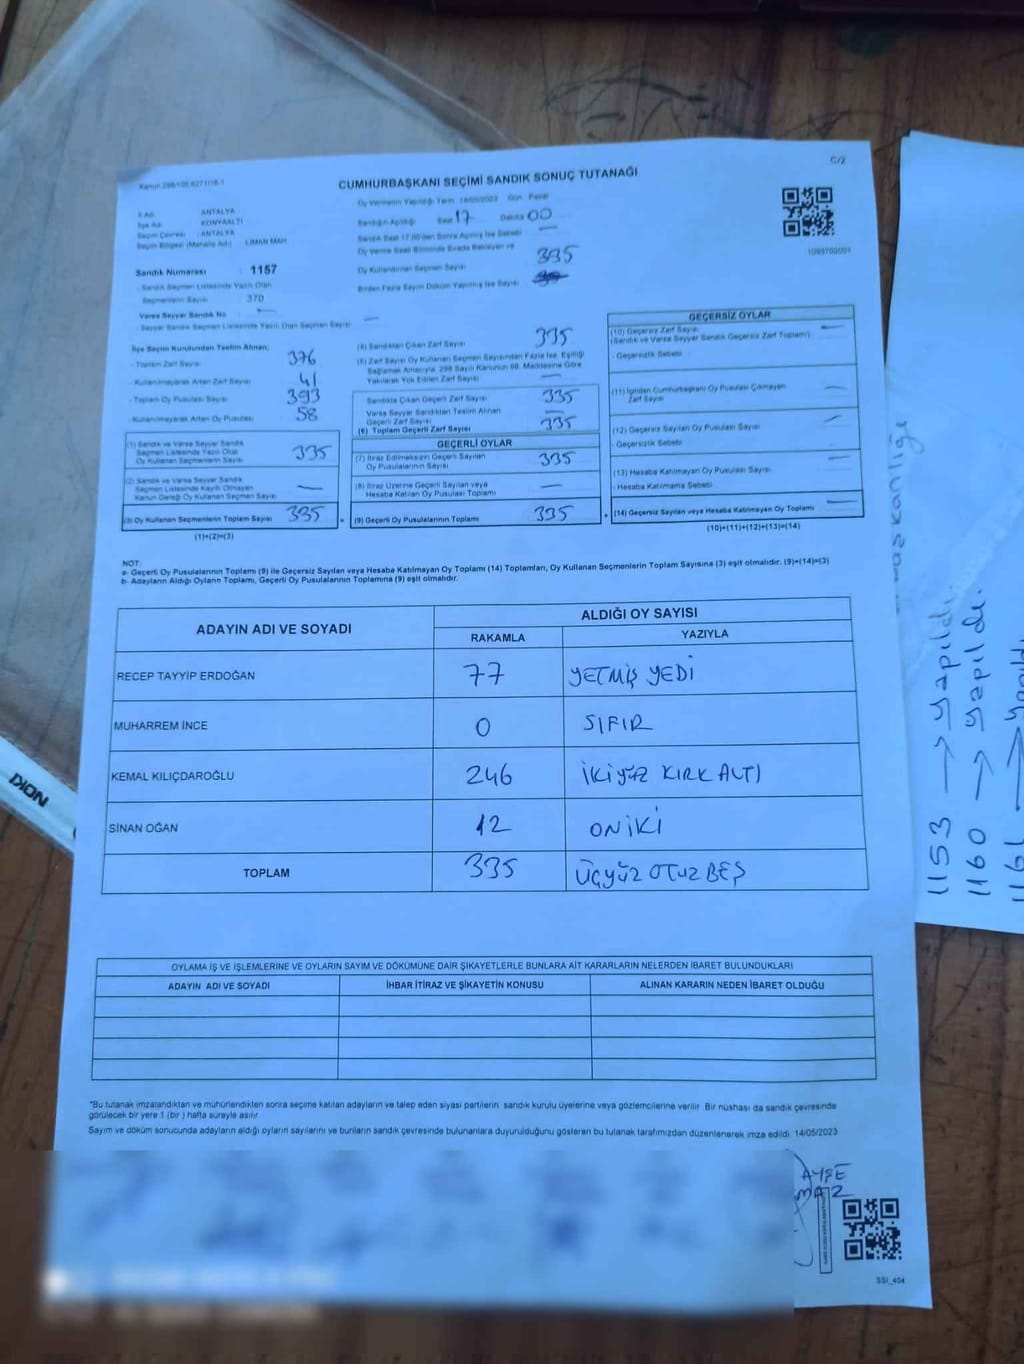 C/2
Kanun 298/105 6271/18.1
CUMHURBAŞKANI SEÇİMİ SANDIK SONUÇ TUTANAĞI
İl Adı : ANTALYA
İlçe Adı : KONYAALTI
Seçim Çevresi : ANTALYA
Seçim Bölgesi (Mahalle Adı) LİMAN MAH
Sandık Numarası : 1157
- Sandık Seçmen Listesinde Yazılı Olan
Seçmenlerin Sayısı : 370
Varsa Seyyar Sandık No —
- Seyyar Sandık Seçmen Listesinde Yazılı Olan Seçmen Sayısı —
Oy Vermenin Yapıldığı Tarih 14/05/2023 Gün Pazar
Sandığın Açıldığı Saat 17 Dakika 00
Sandık Saat 17.00'den Sonra Açılmış İse Sebebi —
Oy Verme Saati Bitiminde Sırada Bekleyen ve
Oy Kullandırılan Seçmen Sayısı 335
Birden Fazla Sayım Döküm Yapılmış İse Sayısı
1093702001
İlçe Seçim Kurulundan Teslim Alınan;
- Toplam Zarf Sayısı 376
- Kullanılmayarak Artan Zarf Sayısı 41
- Toplam Oy Pusulası Sayısı 393
- Kullanılmayarak Artan Oy Pusulası 58
(1) Sandık ve Varsa Seyyar Sandık
Seçmen Listesinde Yazılı Olup
Oy Kullanan Seçmenlerin Sayısı 335
(2) Sandık ve Varsa Seyyar Sandık
Seçmen Listesinde Kayıtlı Olmayan
Kanun Gereği Oy Kullanan Seçmen Sayısı —
(3) Oy Kullanan Seçmenlerin Toplam Sayısı 335
(1)+(2)=(3)
(4) Sandıktan Çıkan Zarf Sayısı 335
(5) Zarf Sayısı Oy Kullanan Seçmen Sayısından Fazla İse, Eşitliği
Sağlamak Amacıyla, 298 Sayılı Kanunun 98. Maddesine Göre
Yakılarak Yok Edilen Zarf Sayısı —
Sandıkta Çıkan Geçerli Zarf Sayısı 335
Varsa Seyyar Sandıktan Teslim Alınan
Geçerli Zarf Sayısı —
(6) Toplam Geçerli Zarf Sayısı 335
GEÇERLİ OYLAR
(7) İtiraz Edilmeksizin Geçerli Sayılan
Oy Pusulalarının Sayısı 335
(8) İtiraz Üzerine Geçerli Sayılan veya
Hesaba Katılan Oy Pusulası Toplamı —
= (9) Geçerli Oy Pusulalarının Toplamı 335
GEÇERSİZ OYLAR
(10) Geçersiz Zarf Sayısı —
(Sandık ve Varsa Seyyar Sandık Geçersiz Zarf Toplamı)
- Geçersizlik Sebebi
(11) İçinden Cumhurbaşkanı Oy Pusulası Çıkmayan
Zarf Sayısı —
(12) Geçersiz Sayılan Oy Pusulası Sayısı —
- Geçersizlik Sebebi
(13) Hesaba Katılmayan Oy Pusulası Sayısı —
- Hesaba Katılmama Sebebi
+ (14) Geçersiz Sayılan veya Hesaba Katılmayan Oy Toplamı —
(10)+(11)+(12)+(13)=(14)
NOT:
a- Geçerli Oy Pusulalarının Toplamı (9) ile Geçersiz Sayılan veya Hesaba Katılmayan Oy Toplamı (14) Toplamları, Oy Kullanan Seçmenlerin Toplam Sayısına (3) eşit olmalıdır. (9)+(14)=(3)
b- Adayların Aldığı Oyların Toplamı, Geçerli Oy Pusulalarının Toplamına (9) eşit olmalıdır.
ADAYIN ADI VE SOYADI
ALDIĞI OY SAYISI
RAKAMLA YAZIYLA
RECEP TAYYİP ERDOĞAN 77 YETMİŞ YEDİ
MUHARREM İNCE 0 SIFIR
KEMAL KILIÇDAROĞLU 246 İKİYÜZ KIRK ALTI
SİNAN OĞAN 12 ONİKİ
TOPLAM 335 ÜÇYÜZ OTUZ BEŞ
OYLAMA İŞ VE İŞLEMLERİNE VE OYLARIN SAYIM VE DÖKÜMÜNE DAİR ŞİKAYETLERLE BUNLARA AİT KARARLARIN NELERDEN İBARET BULUNDUKLARI
ADAYIN ADI VE SOYADI İHBAR İTİRAZ VE ŞİKAYETİN KONUSU ALINAN KARARIN NEDEN İBARET OLDUĞU
*Bu tutanak imzalandıktan ve mühürlendikten sonra seçime katılan adayların ve talep eden siyasi partilerin sandık kurulu üyelerine veya gözlemcilerine verilir. Bir nüshası da sandık çevresinde
görülecek bir yere 1 (bir) hafta süreyle asılır.
Sayım ve döküm sonucunda adayların aldığı oyların sayılarını ve bunların sandık çevresinde bulunanlara duyurulduğunu gösteren bu tutanak tarafımızdan düzenlenerek imza edildi. 14/05/2023
AYŞE
SSI_404
1153 → yapıldı.
1160 → yapıldı.
1161 →
NOKI